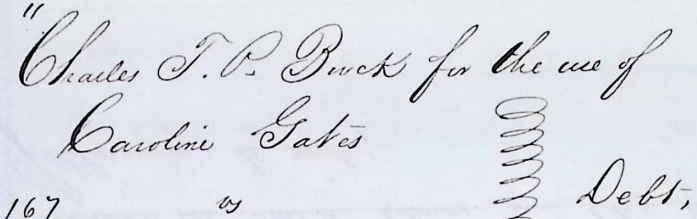 "
Charles T. P. Buck for the use of
Caroline Gates
167 vs Debt,